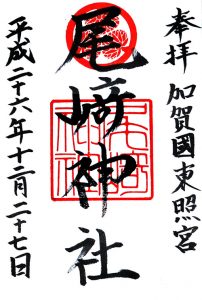 奉拝 加賀國東照宮
尾﨑神社
平成二十六年十二月二十七日